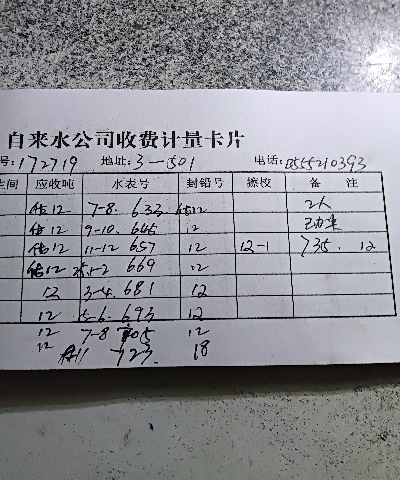 自来水公司收费计量卡片
号:172719 地址:3-501 电话:13555210393
间 应收吨 水表号 封铅号 擦校 备 注
估12 7-8. 633 估12 2人
估12 9-10. 645 12
估12 11-12 657 12 12-1 735. 12
估12 25.1-2 669 12
12 3-4. 681 12
12 5-6. 693 12
12 7-8 705 12
12 723. 18